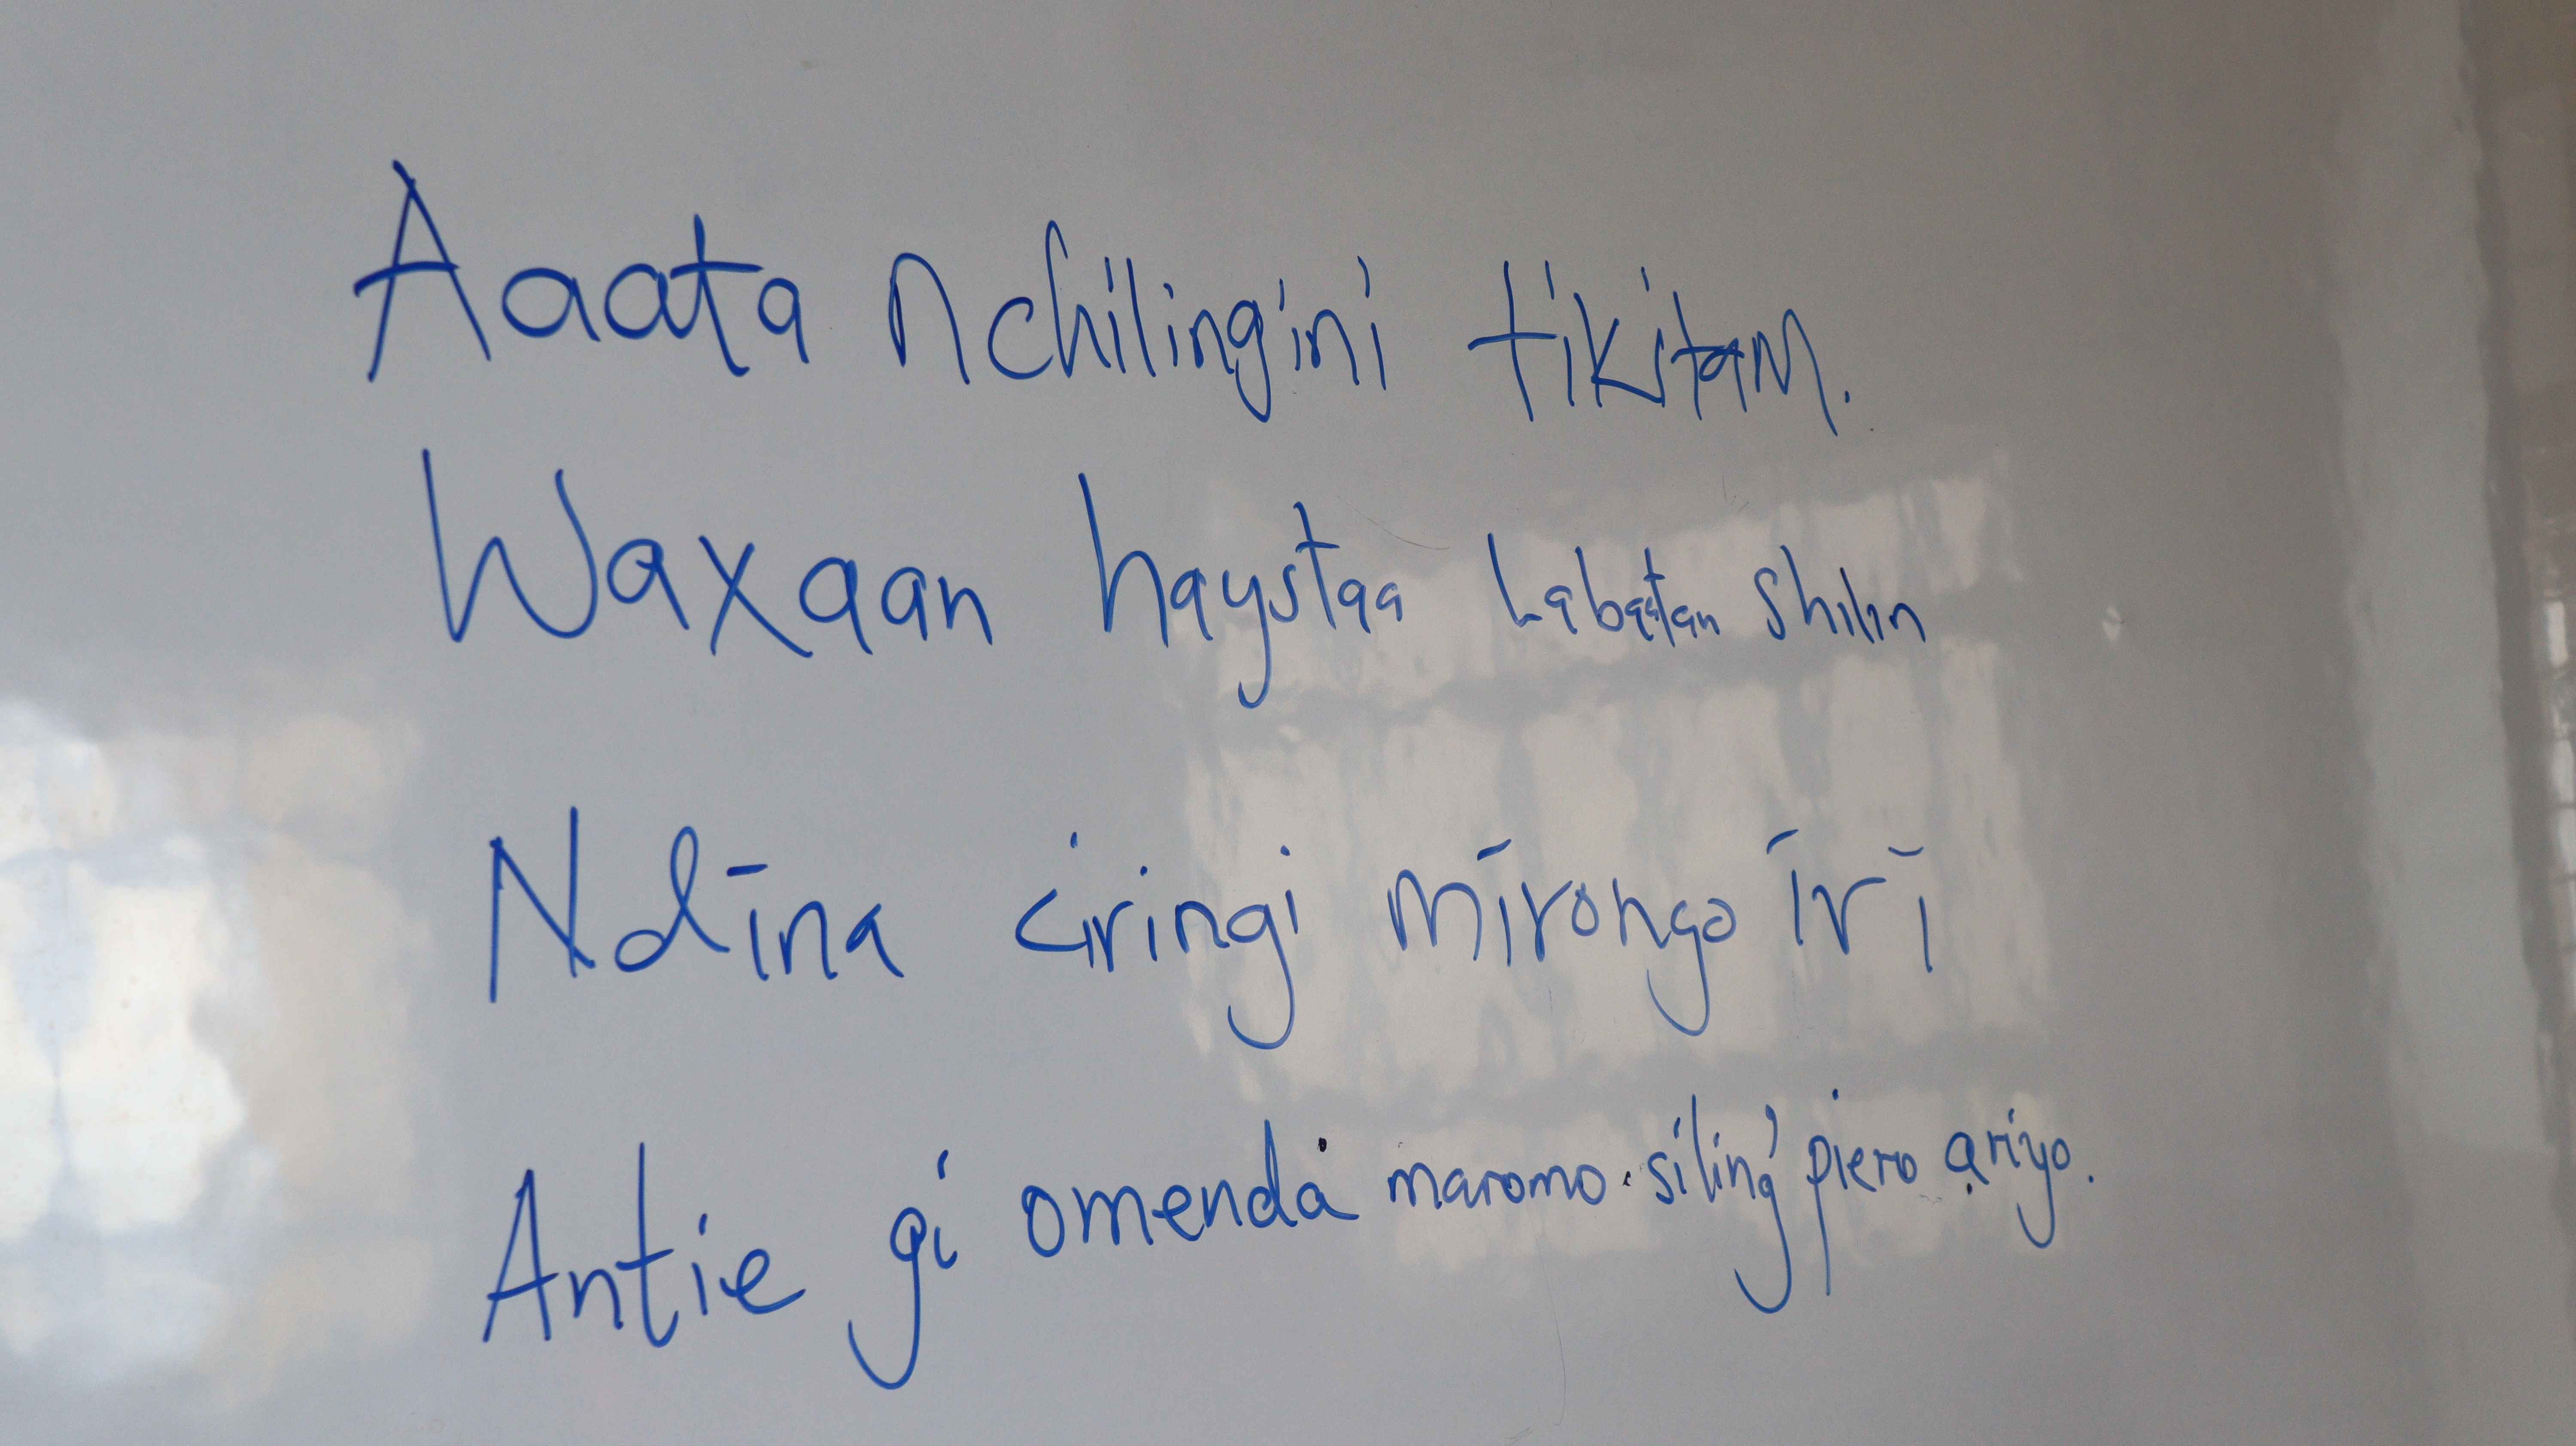 Aaata nchilingini tikitam.
Waxaan haystaa Labaatan Shilin
Ndīna ciringi mīrongo īrī
Antie gi omenda maromo siling' piero ariyo.